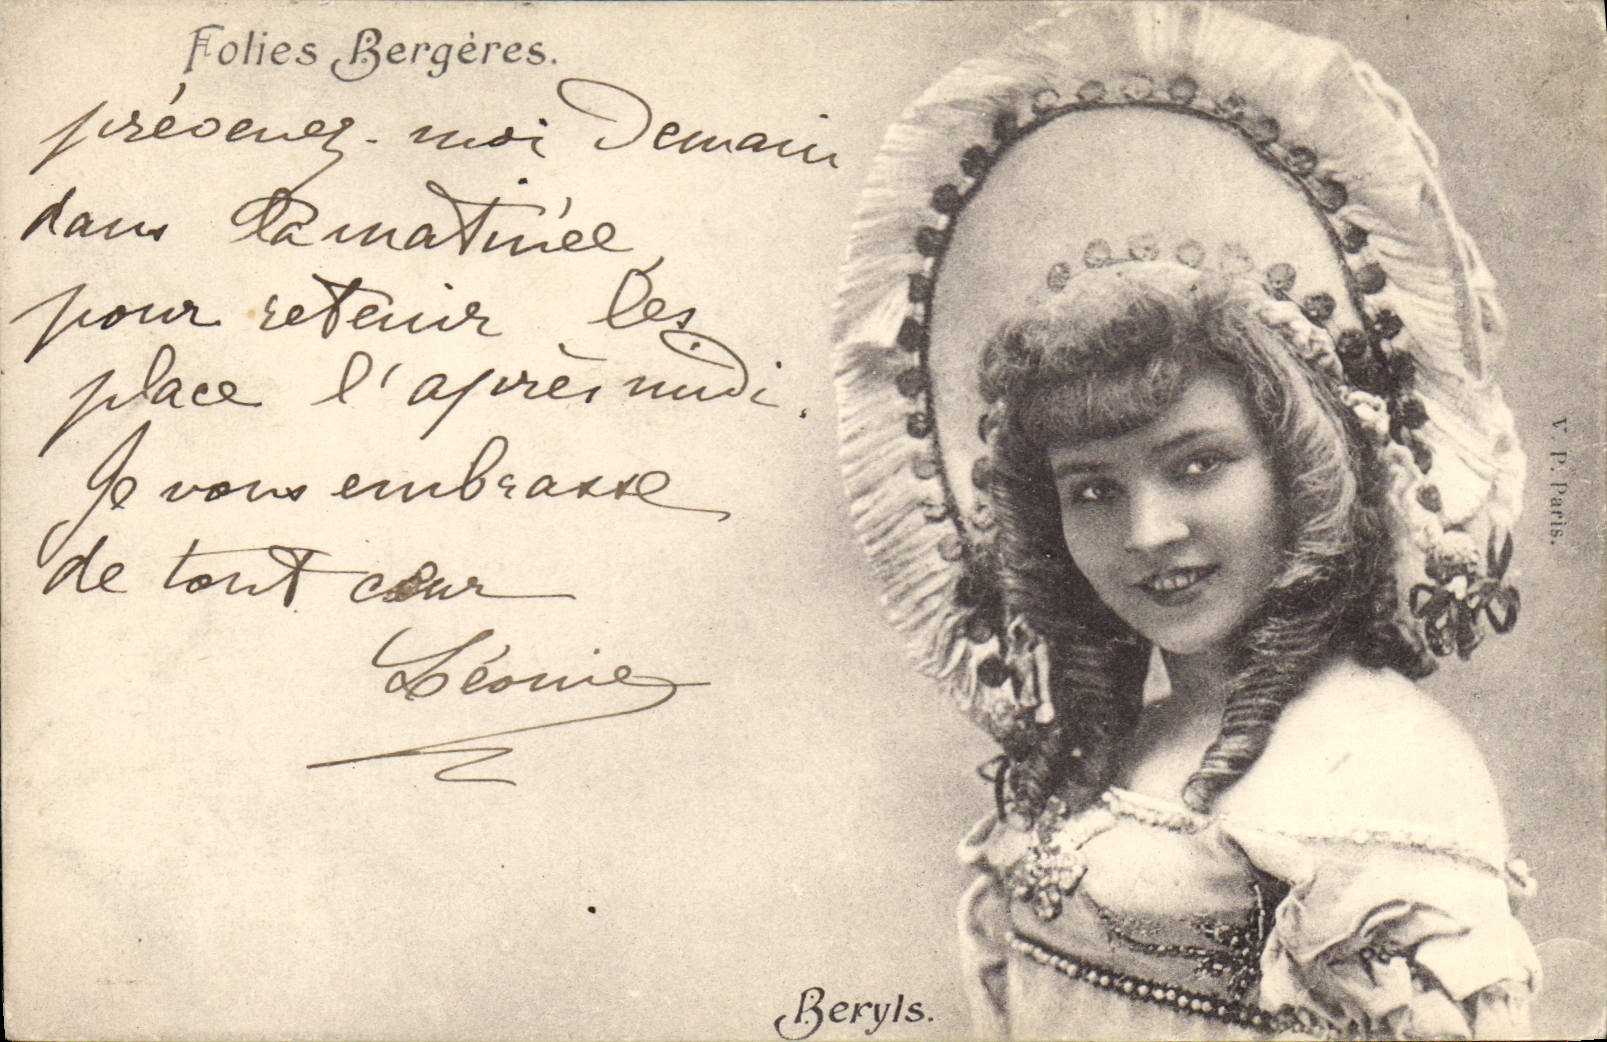 Folies Bergères.
prévenez-moi Demain
dans la matinée
pour retenir les
place l'après midi.
Je vous embrasse
de tout cœur
Léonie
V. P. Paris.
Beryls.